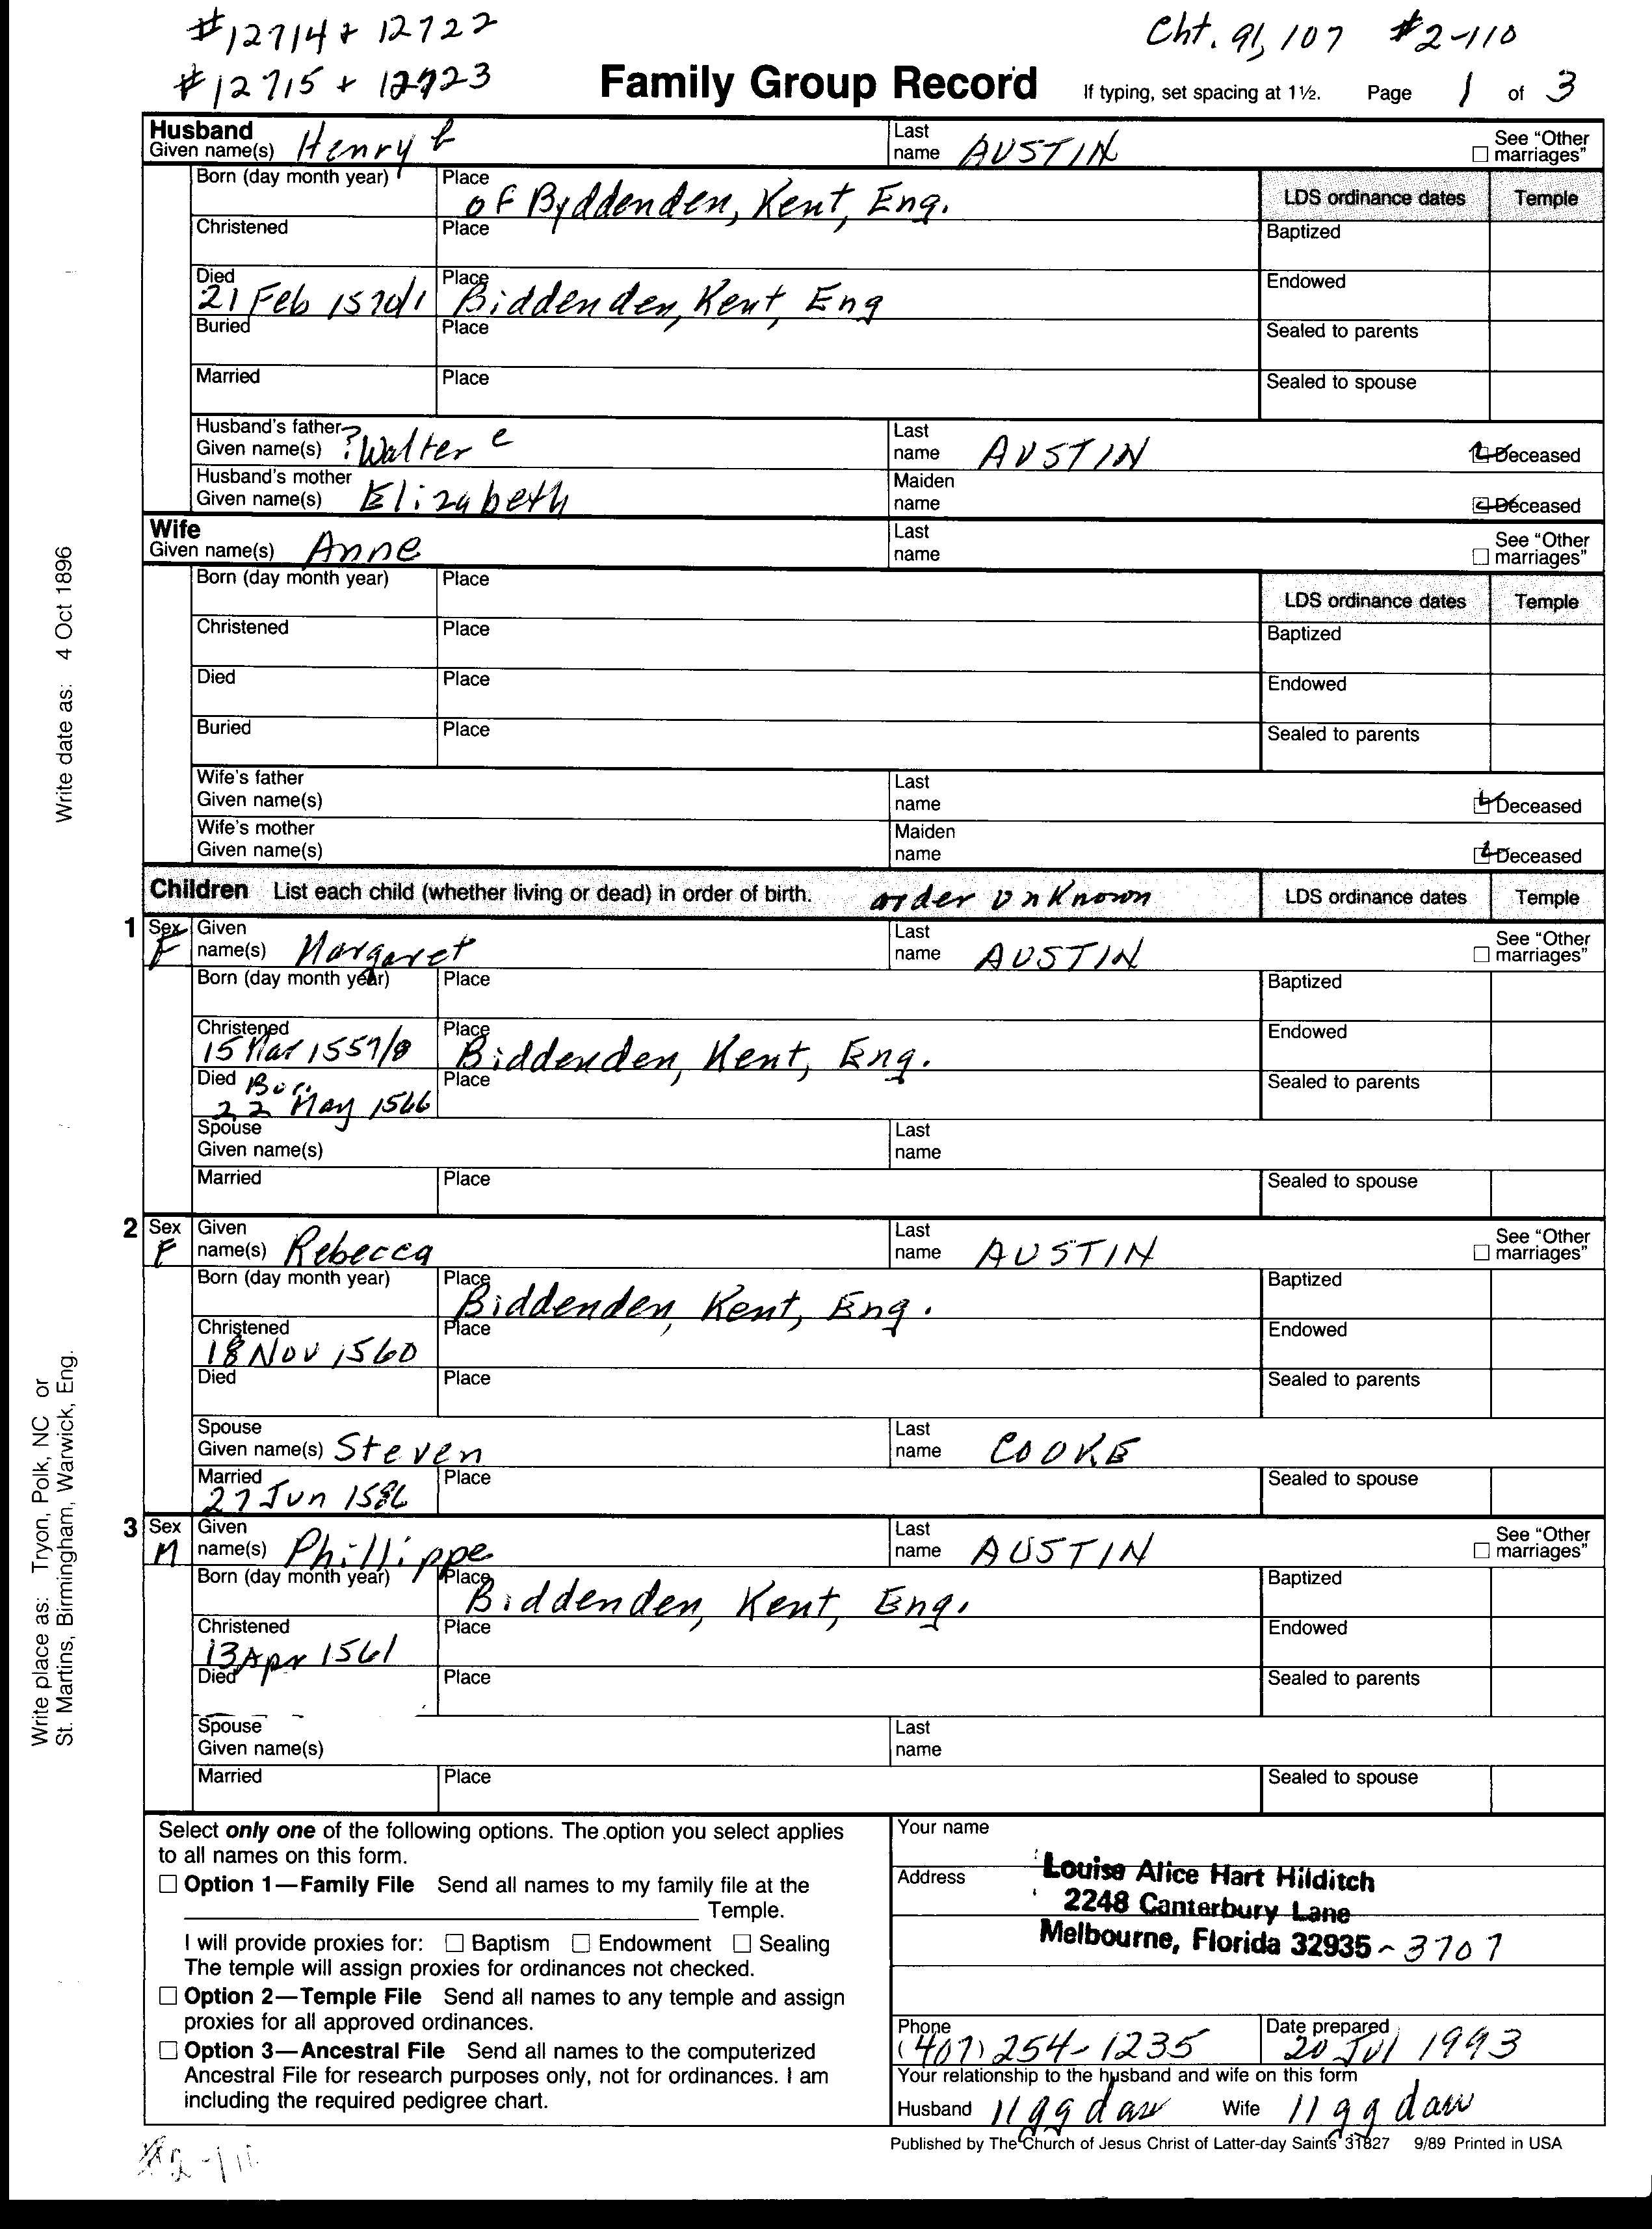 #12714 + 12722
Cht. 91, 107 #2-110
#12715 + 12723
Family Group Record
If typing, set spacing at 1½. Page 1 of 3
Husband
Given name(s) Henry
Last name AUSTIN
See "Other marriages"
Born (day month year)
Place of Byddenden, Kent, Eng.
LDS ordinance dates Temple
Christened
Place
Baptized
Died 21 Feb 1570/1
Place Biddenden, Kent, Eng
Endowed
Buried
Place
Sealed to parents
Married
Place
Sealed to spouse
Husband's father
Given name(s) ? Walter e
Last name AUSTIN
Deceased
Husband's mother
Given name(s) Elizabeth
Maiden name
Deceased
Wife
Given name(s) Anne
Last name
See "Other marriages"
Born (day month year)
Place
LDS ordinance dates Temple
Christened
Place
Baptized
Died
Place
Endowed
Buried
Place
Sealed to parents
Wife's father
Given name(s)
Last name
Deceased
Wife's mother
Given name(s)
Maiden name
Deceased
Children List each child (whether living or dead) in order of birth. order unKnown
LDS ordinance dates Temple
1 Sex F
Given name(s) Margaret
Last name AUSTIN
See "Other marriages"
Born (day month year)
Place
Baptized
Christened 15 Mar 1557/8
Place Biddenden, Kent, Eng.
Endowed
Died Bur. 22 May 1566
Place
Sealed to parents
Spouse
Given name(s)
Last name
Married
Place
Sealed to spouse
2 Sex F
Given name(s) Rebecca
Last name AUSTIN
See "Other marriages"
Born (day month year)
Place Biddenden, Kent, Eng.
Baptized
Christened 18 Nov 1560
Place
Endowed
Died
Place
Sealed to parents
Spouse
Given name(s) Steven
Last name COOKE
Married 27 Jun 1586
Place
Sealed to spouse
3 Sex M
Given name(s) Phillippe
Last name AUSTIN
See "Other marriages"
Born (day month year)
Place Biddenden, Kent, Eng.
Baptized
Christened 13 Apr 1561
Place
Endowed
Died
Place
Sealed to parents
Spouse
Given name(s)
Last name
Married
Place
Sealed to spouse
Select only one of the following options. The option you select applies
to all names on this form.
Option 1—Family File Send all names to my family file at the
Temple.
I will provide proxies for: Baptism Endowment Sealing
The temple will assign proxies for ordinances not checked.
Option 2—Temple File Send all names to any temple and assign
proxies for all approved ordinances.
Option 3—Ancestral File Send all names to the computerized
Ancestral File for research purposes only, not for ordinances. I am
including the required pedigree chart.
Your name
Address
Louise Alice Hart Hilditch
2248 Canterbury Lane
Melbourne, Florida 32935 - 3707
Phone (407) 254-1235
Date prepared 20 Jul 1993
Your relationship to the husband and wife on this form
Husband 11 gg dau Wife 11 gg dau
Published by The Church of Jesus Christ of Latter-day Saints 31827 9/89 Printed in USA
#2-110
Write date as: 4 Oct 1896
Write place as: Tryon, Polk, NC or
St. Martins, Birmingham, Warwick, Eng.